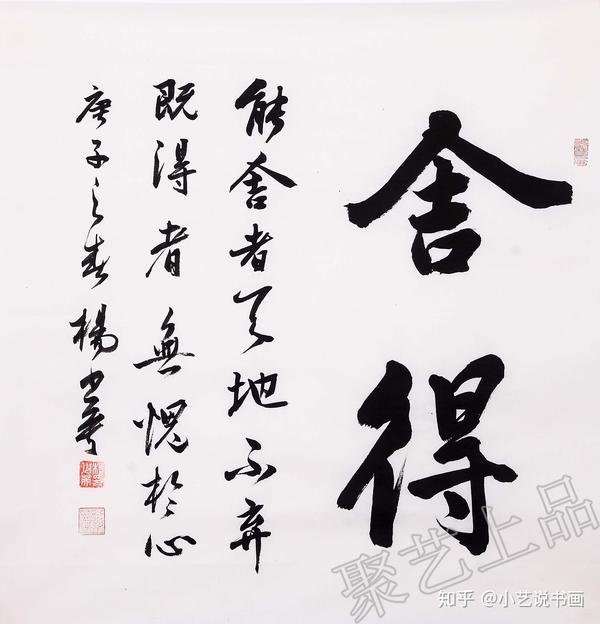 舍得
能舍者天地不弃
既得者無愧於心
庚子之春楊
聚艺上品
知乎 @小艺说书画